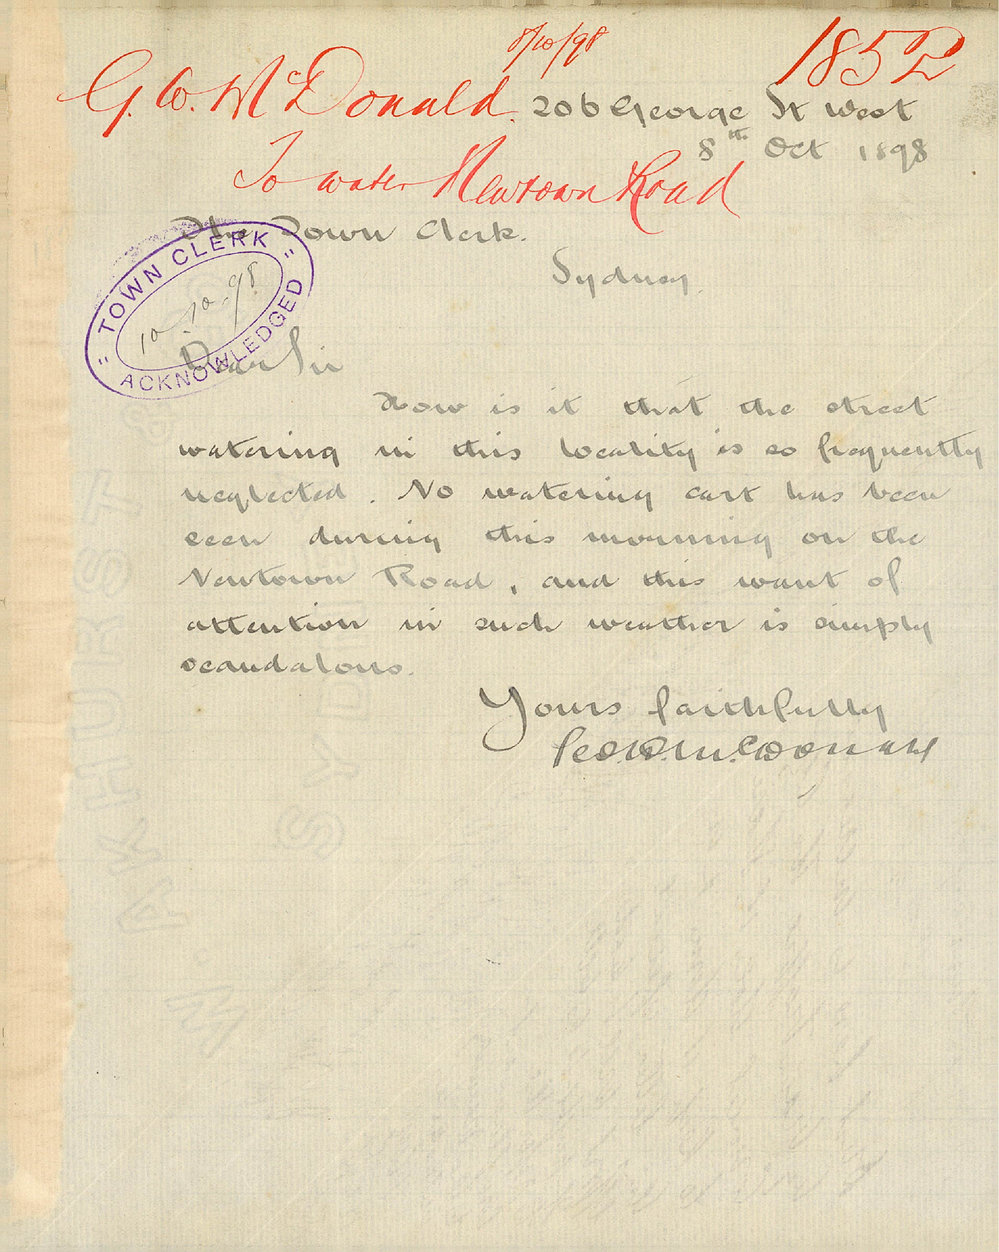 8/10/98
1852
G. W. McDonald.
206 George St West
8th Oct 1898
To water Newtown Road
The Town Clerk.
Sydney.
"TOWN CLERK"
10.10.98
ACKNOWLEDGED
Dear Sir
How is it that the street
watering in this locality is so frequently
neglected. No watering cart has been
seen during this morning on the
Newtown Road, and this want of
attention in such weather is simply
scandalous.
Yours faithfully
Geo. W. McDonald